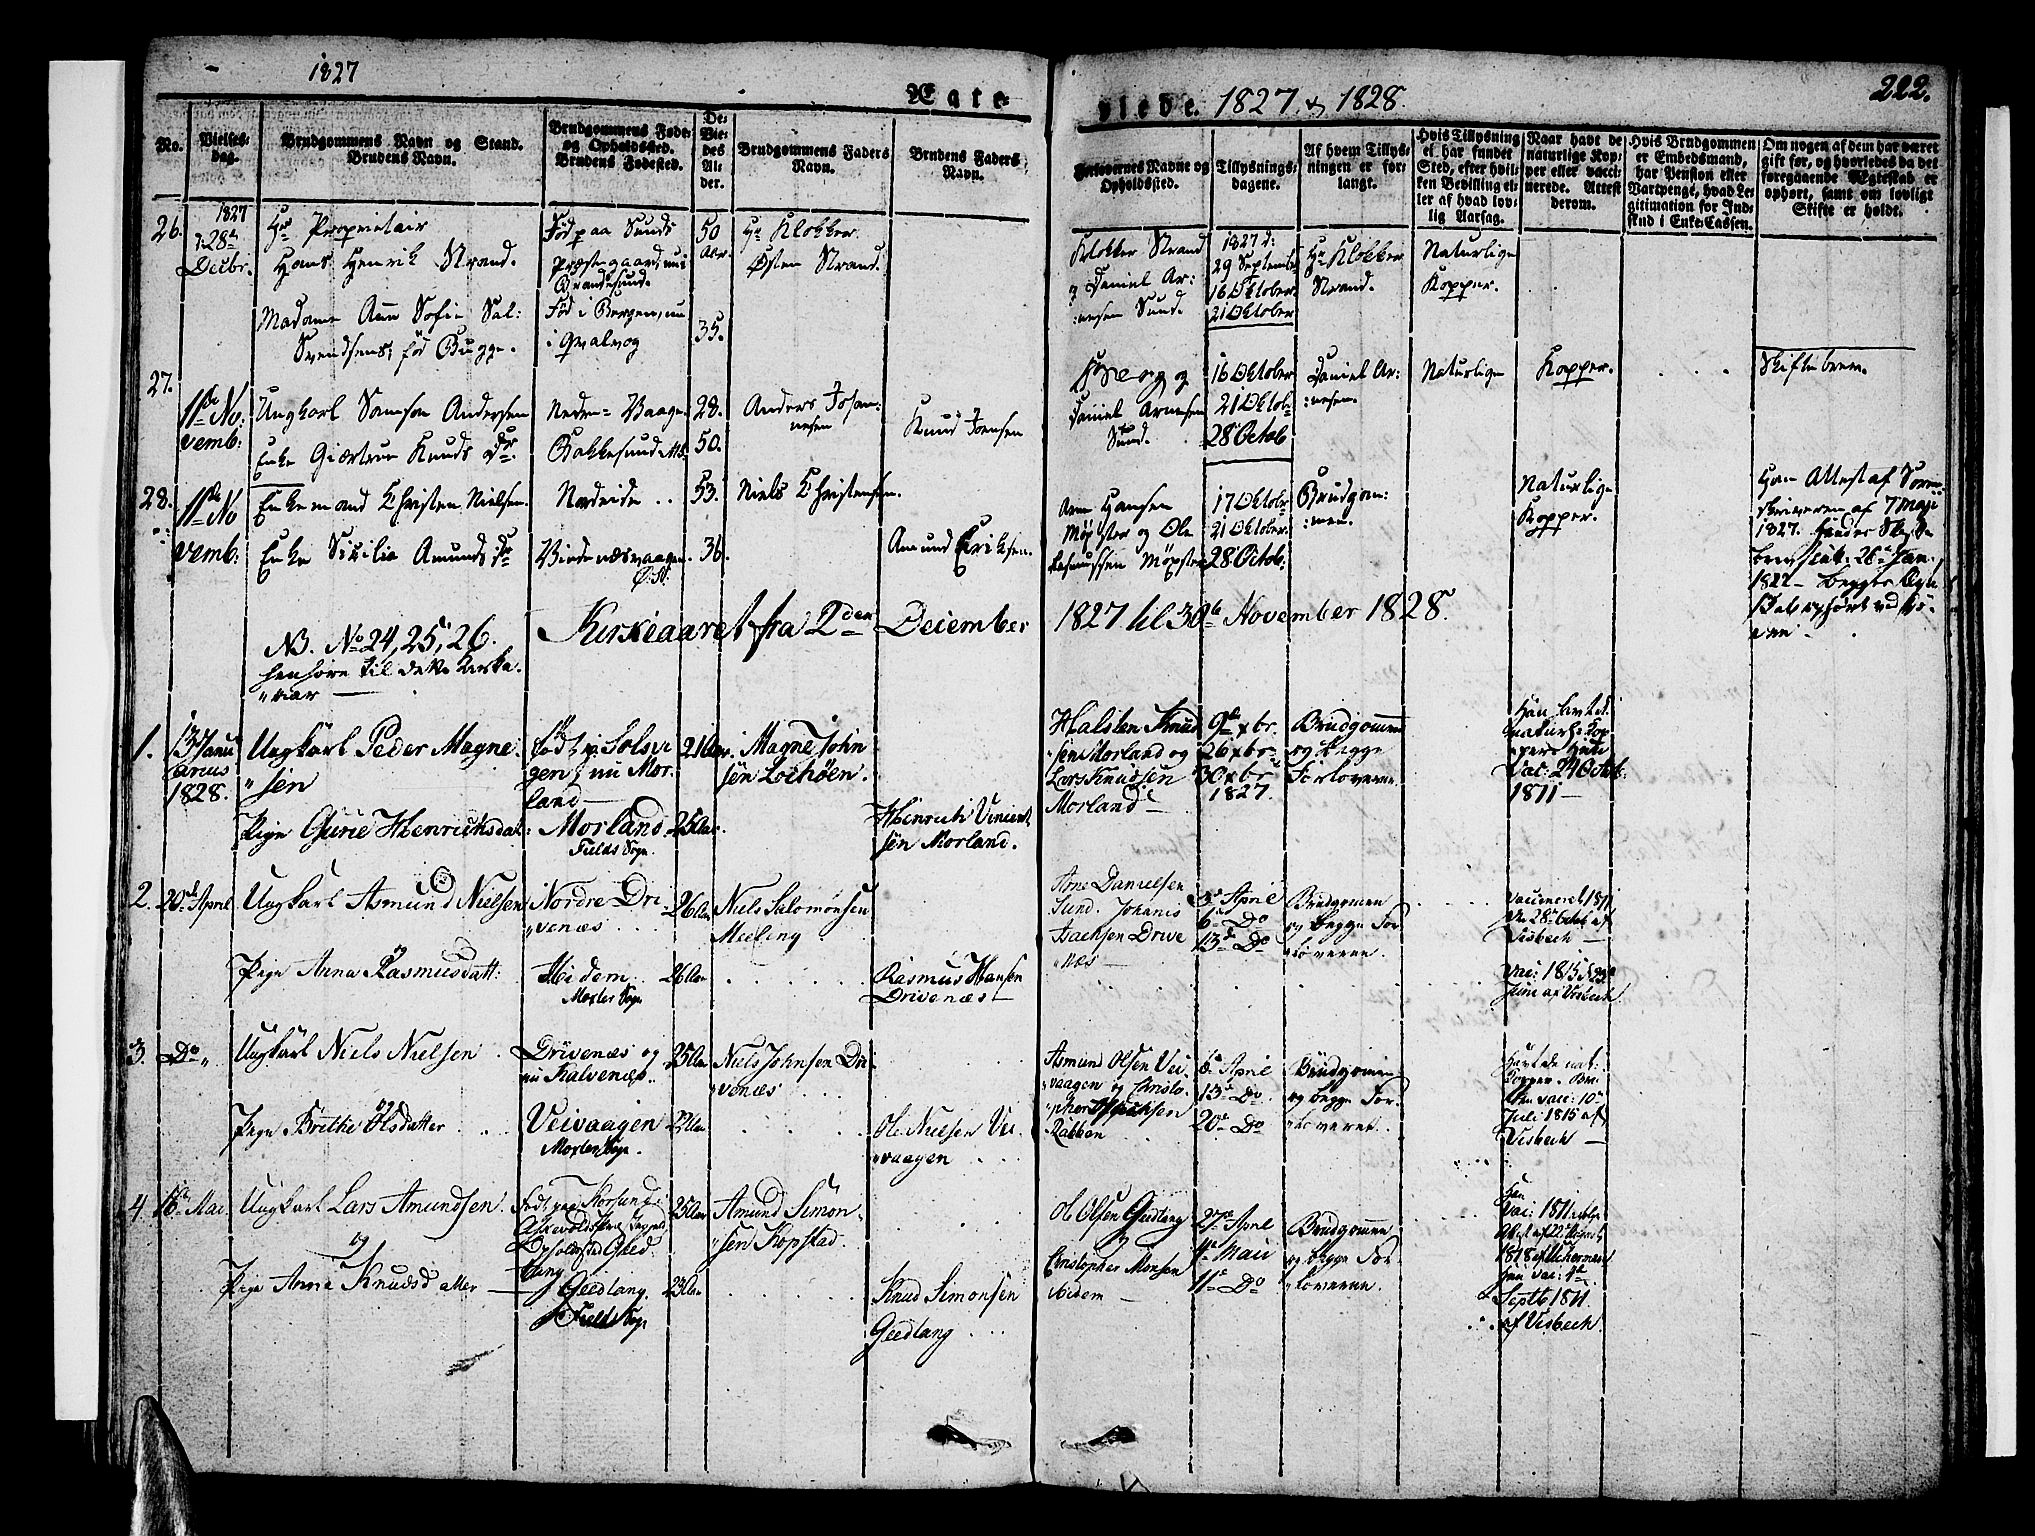 1827
Ægte-
viede. 1827 & 1828.
222.
No.
Vielses-
dag.
Brudgommens Navn og Stand.
Brudens Navn.
Brudgommens Føde-
og Opholdssted.
Brudens Fødested.
De
Vie-
des
Al-
der.
Brudgommens Faders
Navn.
Brudens Faders
Navn.
Forlovernes Navne og
Opholdssted.
Tillysnings-
dagene.
Af hvem Tillys-
ningen er for-
langt.
Hvis Tillysning
ei har fundet
Sted, efter hvil-
ken Bevilling el-
ler af hvad lov-
lig Aarsag.
Naar havt de
naturlige Kop-
per eller vacci-
nerede. Attest
derom.
Hvis Brudgommen
er Embedsmand,
har Pension eller
Vartpenge, hvad Le-
gitimation for Ind-
skud i Enke-Cassen.
Om nogen af dem har været
gift før, og hvorledes da det
foregaaende Ægteskab er
ophørt, samt om lovligt
Skifte er holdt.
26.
1827
d: 28de
Decbr.
Hr Proprietair
Hans Henrik Strand.
Madame Ann Sofie Sal:
Svendsens, fød Bugge.
Fød paa Sunds
Præstegaard, nu i
Brandesund.
Fød i Bergen, nu
i Qvalvog
50
Aar.
35.
Hr Klokker
Østen Strand.
Klokker Strand
og Daniel Ar:
:nesen Sund.
1827 d:
29 Septembr
16 October
21 October
Hr Klokker
Strand.
Naturlige
Kopper.
27.
11te No:
vemb:
Ungkarl Samson Andersen
Enke Giertrue Knuds Dr.
Neden- Vaage
Bakkesund
28.
50.
Anders Johan-
nesen
Knud Joensen
og
Daniel Arnesen
Sund.
16 October
21 Octobr
28 Octob
Daniel Ar:
:nesen.
Naturlige
Kopper.
Skiftebrev.
28.
11te No
vemb:
Enkemand Christen Nielsen
Enke Sicilia Amunds Dr
Nordeide
Vindenæsvaagen
53.
36.
Niels Christensen.
Amund Eriksen.
Arn Hansen
Møgster og Ole
Rasmussen Møgster
17 Octobr
21 October
28 Octob:
Brudgom:
:men.
Naturlige
Kopper.
Ham Attest af Soren-
skriveren af 7 Maji
1827. Hendes Skifte
brev dat: 26de Jan.
1827 – begges Ægte
skab ophørt ved Dø-
den.
NB. No 24, 25, 26.
henhøre til dette Kirke-
"aar —
Kirkeaaret fra 2den December
1827 til 30te November 1828.
1.
13 Janu
arius
1828.
Ungkarl Peder Magne
"sen
Pige Gurie Henrichsdat:
født p: Solsø
gen, nu Mor-
land —
Morland.
Fields Sogn.
21 Aar.
25 Aar.
Magne John
sen Lochøen.
Hinrich Vincent
sen Morland.
Halsten Knud
"sen Morland og
Lars Knudsen
Morland —
9de xbr.
26 xbr
30 xbr
1827.
Brudgomm
og begge
Forloverne
Han havt de
naturl: Kop
per hun
Vac: 24 Octob:
1811 —
2.
20de April
Ungkarl Asmund Nielsen
og
Pige Anna Rasmusdatt:
Nordre Dri
"venæs
Hidem
Moster Sogn
26 Aar
26 Aar
Niels Salomonsen
Meeling
Rasmus Hansen
Drivenæs —
Arne Danielsen
Sund. Johanis
Isachsen Drive
"næs —
5de April
6de Do
13de Do
Brudgomen
og begge For
"loverne.
vaccineret 1811
den 28de Octob af
Visbech —
vac: 1815 d 23de
Juni af Visbech
3.
Do "
Ungkarl Niels Nielsen
og
Pige Brithe Olsdatter
Drivenæs og
nu Kalvenæs.
Veivaagen
Moster Sogn.
25 Aar
22 Aar
Niels Johnsen Dri
"venæs
Ole Nielsen Vei
"vaagen
Asmund Olsen Vei
"vaagen og Christo
"pher Isachsen
Rabben
6de April
13de Do
20de Do
Brudgomen
og begge For
"loveret.
Han havt de nat:
Kopper. Bru
den vac: 10de
Juli 1815 af
Visbech —
4.
16de Mai
Ungkarl Lars Amundsen.
og
Pige Anna Knudsdatter —
Født paa Korsund i
Opholdsted Gied
lang
Giedlang.
Fields Sogn
25 Aar
23 Aar
Amund Simon-
"sen Kopstad
Knud Simonsen
Giedlang
Ol Olsen Giedlang
og
Christopher Monsen
ibidem —
27de April
4de Maii
11te Do
Brudgommen
og begge For-
"loverne.
Han
Vac: 1811 ifølge
Attest af 22 August
1818 af Uchermann
hun vac: 1ste
Septb 1811.
af Visbech.